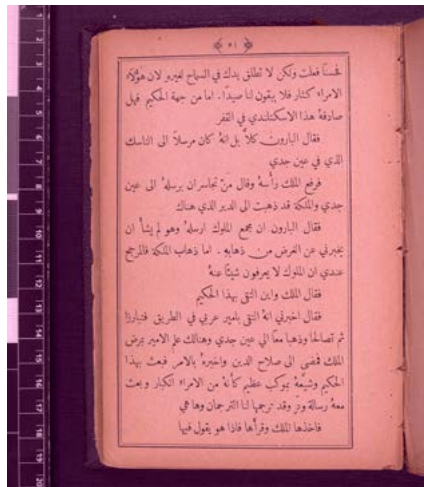 ﴿ ٥١ ﴾
فحسنًا فعلت ولكن لا تطلق يدك في السماح لغيرهِ لان هؤلآء
الامراء كثار فلا يبقون لنا صيدًا. اما من جهة الحكيم فهل
صادفهُ هذا الاسكتلندي في القفر
فقال البارون كلاَّ بل انهُ كان مرسلاً الى الناسك
الذي في عين جدي
فرفع الملك رأسهُ وقال مَنْ تجاسر ان يرسلهُ الى عين
جدي والملكة قد ذهبت الى الدير الذي هناك
فقال البارون ان مجمع الملوك ارسلهُ وهو لم يشأ ان
يخبرني عن الغرض من ذهابهِ. اما ذهاب الملكة فالمرجح
عندي ان الملوك لا يعرفون شيئًا عنهُ
فقال الملك واين التقى بهذا الحكيم
فقال اخبرني انهُ التقى بامير عربي في الطريق فتبارزا
ثم تصالحا وذهبا معًا الى عين جدي وهنالك علم الامير بمرض
الملك فمضى الى صلاح الدين واخبرهُ بالامر فبعث بهذا
الحكيم وشيَّعهُ بموكب عظيم كأنهُ من الامراء الكبار وبعث
معهُ رسالة ودّ وقد ترجمها لنا الترجمان وها هي
فاخذها الملك وقرأها فاذا هو يقول فيها